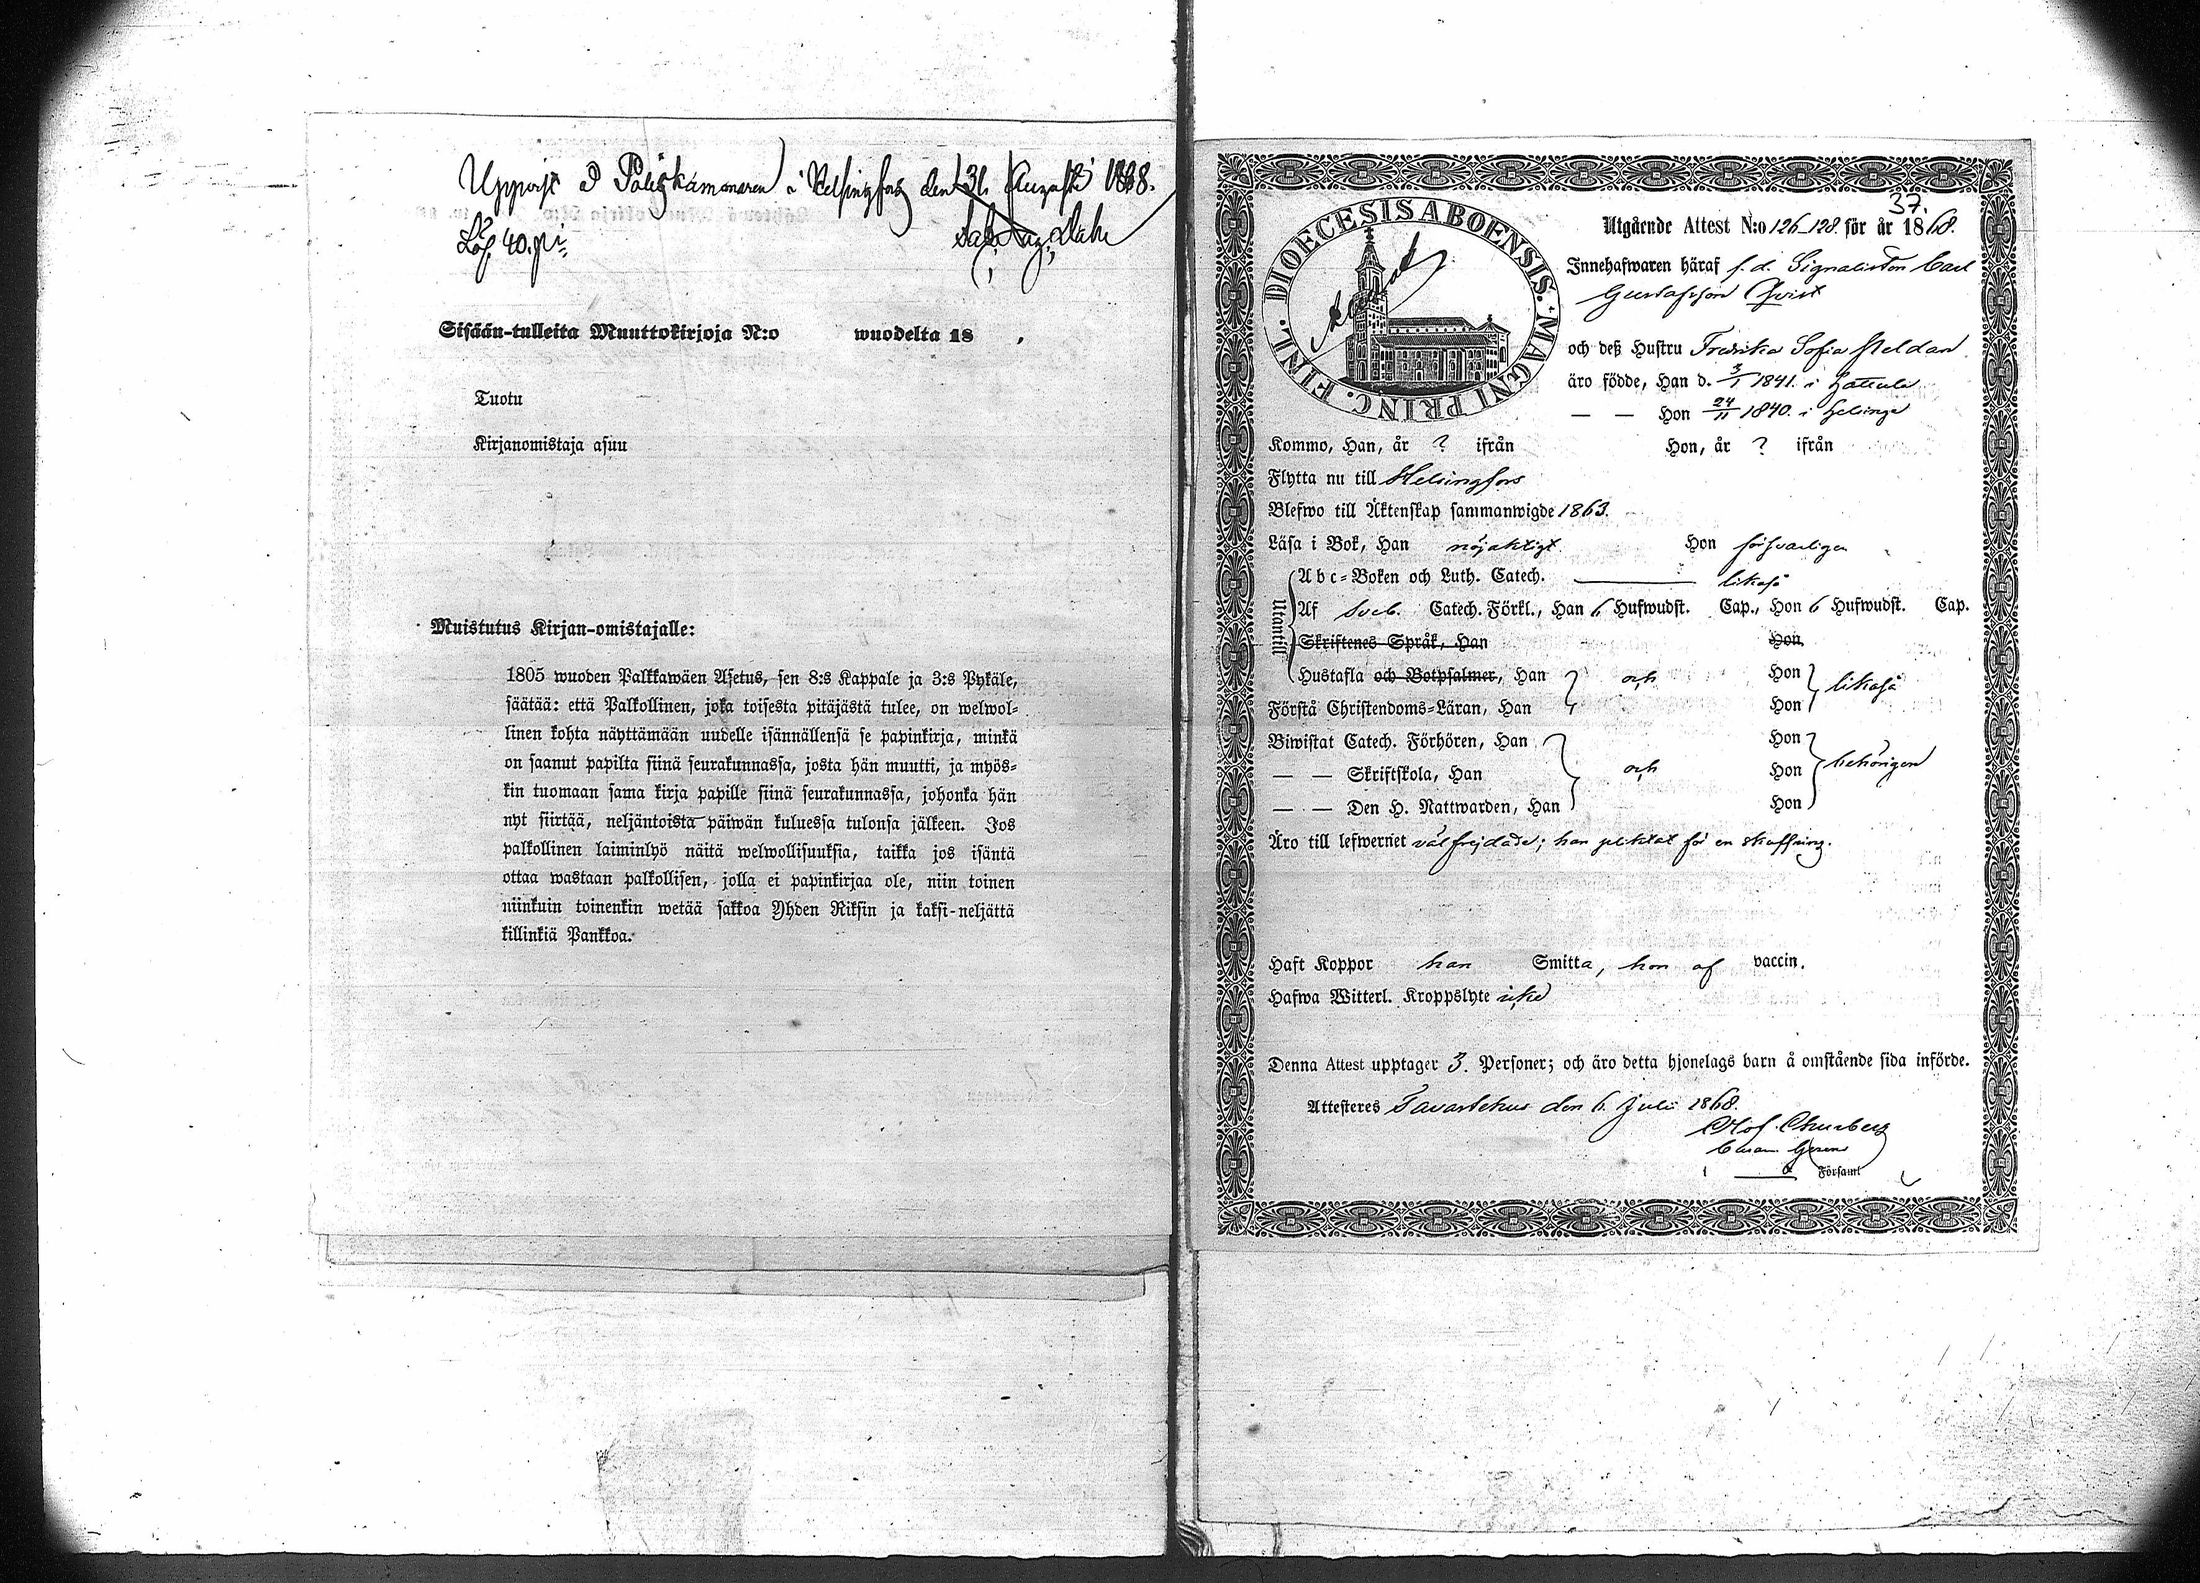 Uppvist å Poliskammaren i Helsingfors den 31 Augusti 1868.
Lös. 40 pi
Sisään-tulleita Muuttokirjoja N:o wuodelta 18 .
Tuotu
Kirjanomistaja asuu
Muistutus Kirjan-omistajalle:
1805 wuoden Palkkawäen Asetus, sen 8:s Kappale ja 3:s Pykäle,
säätää: että Palkollinen, joka toisesta pitäjästä tulee, on welwol-
linen kohta näyttämään uudelle isännällensä se papinkirja, minkä
on saanut papilta siinä seurakunnassa, josta hän muutti, ja myös-
kin tuomaan sama kirja papille siinä seurakunnassa, johonka hän
nyt siirtää, neljäntoista päiwän kuluessa tulonsa jälkeen. Jos
palkollinen laiminlyö näitä welwollisuuksia, taikka jos isäntä
ottaa wastaan palkollisen, jolla ei papinkirjaa ole, niin toinen
niinkuin toinenkin wetää sakkoa Yhden Riksin ja kaksi-neljättä
killinkiä Pankkoa.
37.
DIOECESIS ABOENSIS. MAGNI PRINC. FINL.
Utgående Attest N:o 126-128 för år 1868.
Innehafwaren häraf f. d. Signalisten Carl
Gustafsson Qvist
och deß Hustru Fredrika Sofia Meldan
äro födde, Han d. 3/1 1841. i Hattula
— — Hon 24/11 1840. i Helsinge
Kommo, Han, år ? ifrån Hon, år ? ifrån
Flytta nu till Helsingfors
Blefwo till Äktenskap sammanwigde 1863.
Läsa i Bok, Han nöjaktigt Hon försvarligen
Utantill
Abc-Boken och Luth. Catech. likaså
Af Sveb. Catech. Förkl., Han 6 Hufwudst. Cap., Hon 6 Hufwudst. Cap.
Skriftenes Språk, Han Hon
Hustafla och Botpsalmer, Han och Hon likaså
Förstå Christendoms-Läran, Han Hon
Biwistat Catech. Förhören, Han Hon
— — Skriftskola, Han och Hon behörigen
— — Den H. Nattwarden, Han Hon
Äro till lefwernet välfrejdade; han pliktat för en skaffning.
Haft Koppor han Smitta, hon af vaccin.
Hafwa Witterl. Kroppslyte icke
Denna Attest upptager 3. Personer; och äro detta hjonelags barn å omstående sida införde.
Attesteres Tavastehus den 6. Juli 1868.
Olof Churberg
Curam Gerens
i Församl